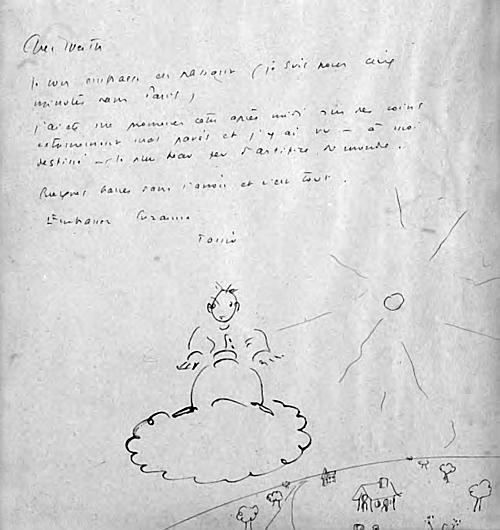 Cher Werth
Je vous embrasse en passant (je suis pour cinq
minutes dans Paris)
J'ai été me promener cet après midi sur des coins
extrêmement mal pavés et j'y ai vu – à moi
destiné – le plus beau feu d'artifice du monde.
Quelques balles dans l'avion et c'est tout.
Suzanne
Tonio